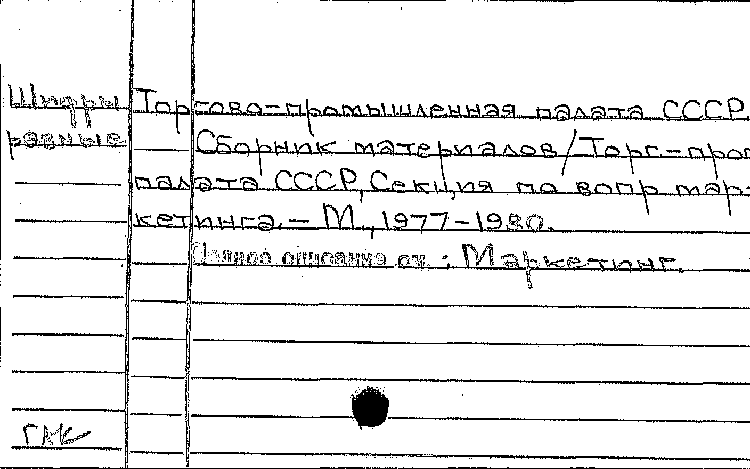 Шифры Торгово-промышленная палата СССР.
разные Сборник материалов/Торг.-пром
палата СССР, Секция по вопр мар-
кетинга. – М., 1977–1980.
Полное описание см. : Маркетинг.
ГАК